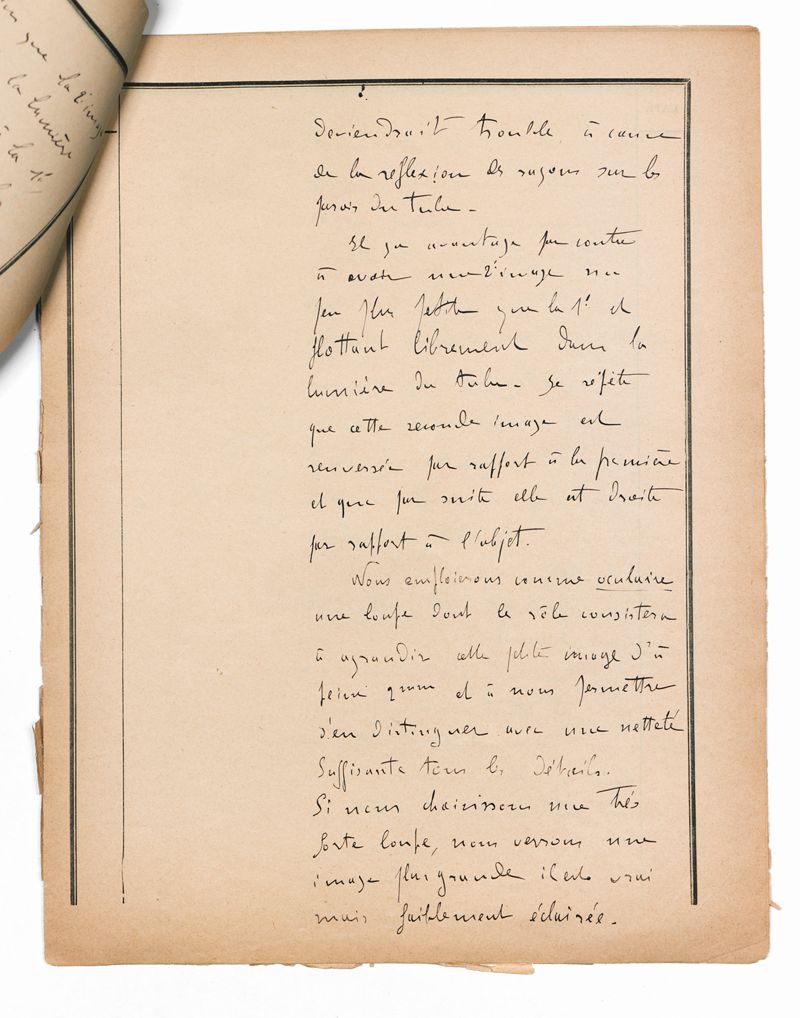 que la 2e image
la lumière
à la 1e
deviendrait trouble, à cause
de la reflexion des rayons sur les
parois du tube.
Il y a avantage par contre
à avoir une 2e image un
peu plus petite que la 1e et
flottant librement dans la
lumière du tube. Je répète
que cette seconde image est
renversée par rapport à la première
et que par suite elle est droite
par rapport à l'objet.
Nous emploierons comme oculaire
une loupe dont le rôle consistera
à agrandir cette petite image d'à
peine 9mm et à nous permettre
d'en distinguer avec une netteté
suffisante tous les détails.
Si nous choisissons une très
forte loupe, nous verrons une
image plus grande il est vrai
mais faiblement éclairée.